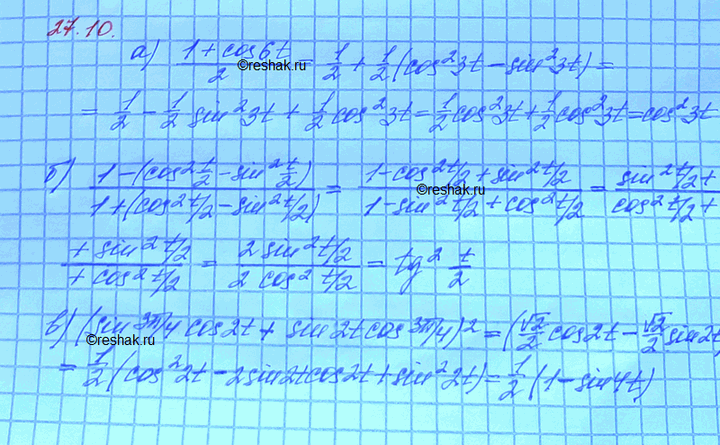 27.10.
а) (1+cos6t)/2 = 1/2 + 1/2 (cos²3t − sin²3t) =
= 1/2 − 1/2 sin²3t + 1/2 cos²3t = 1/2 cos²3t + 1/2 cos²3t = cos²3t
б) (1−(cos² t/2 − sin² t/2))/(1+(cos² t/2 − sin² t/2)) = (1−cos² t/2 + sin² t/2)/(1−sin² t/2 + cos² t/2) = (sin² t/2 +)/(cos² t/2 +)
(+ sin² t/2)/(+ cos² t/2) = (2 sin² t/2)/(2 cos² t/2) = tg² t/2
в) (sin 3π/4 cos2t + sin2t cos 3π/4)² = (√2/2 cos2t − √2/2 sin2t
= 1/2 (cos²2t − 2sin2tcos2t + sin²2t) = 1/2 (1−sin4t)
©reshak.ru
©reshak.ru
©reshak.ru